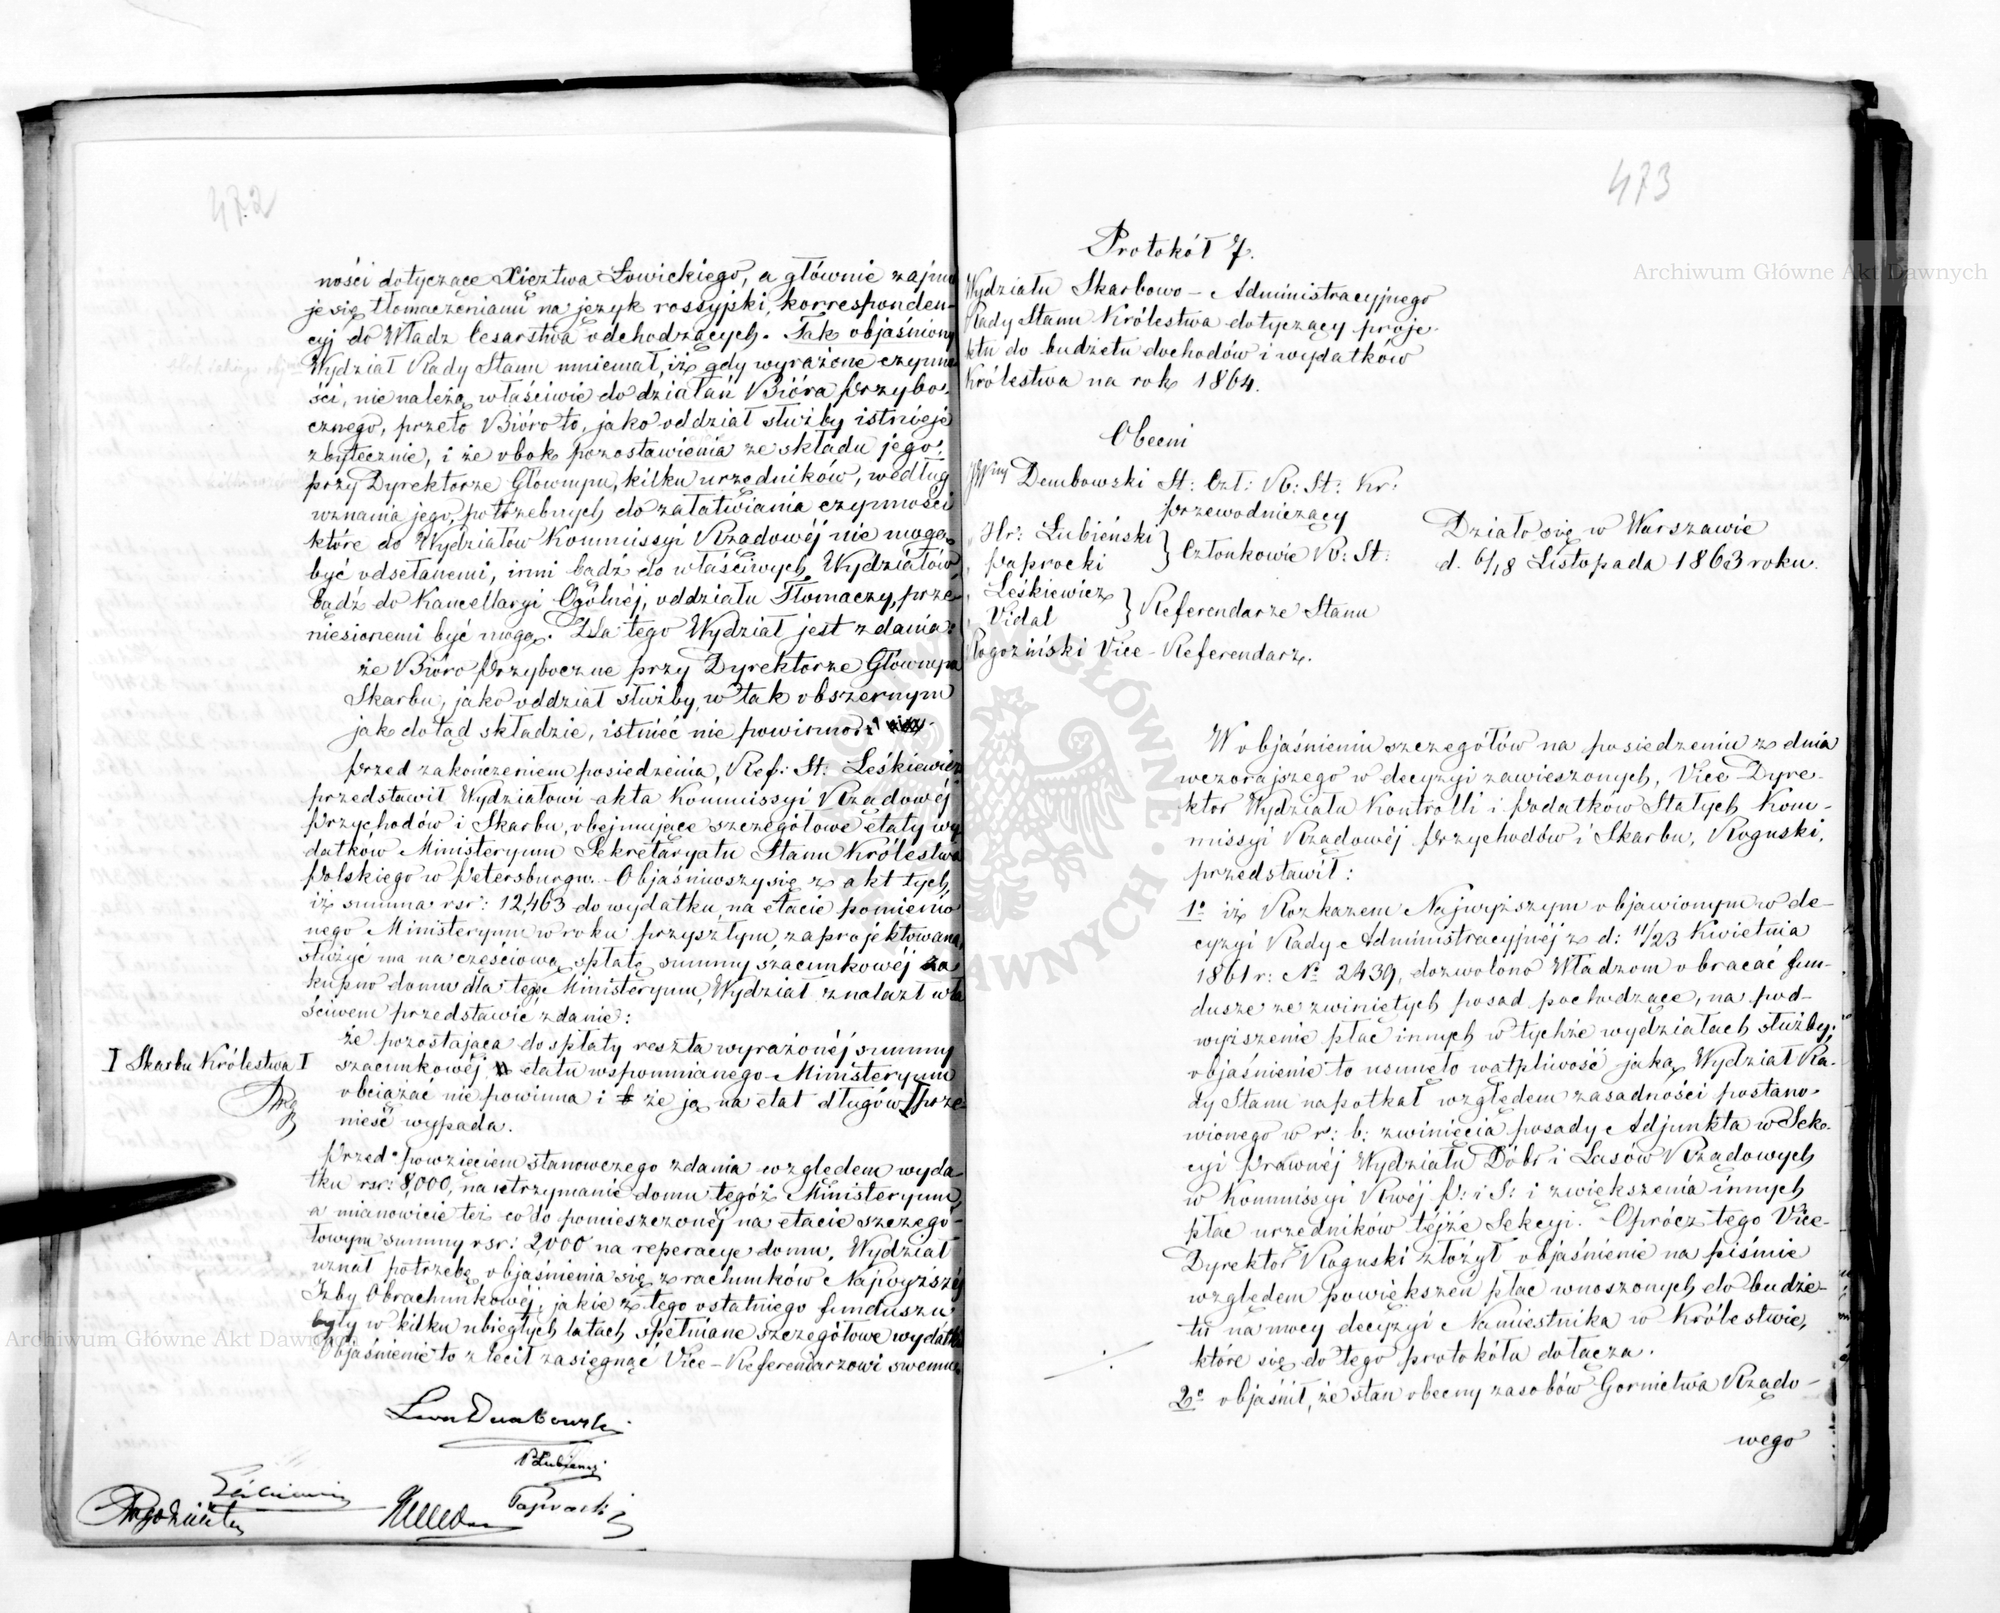 472
ności dotyczące Xięztwa Łowickiego, a głównie zajmu
je się tłomaczeniami na język rossyjski, korresponden-
cyj do Władz Cesarstwa odchodzących. Tak objaśniony
Wydział Rady Stanu mniemał, iż gdy wyrażone czynno
ści, nie należą właściwie do działań Bióra Przybo-
cznego, przeto Bióro to, jako oddział służby istnieje
zbytecznie, i że obok pozostawienia ze składu jego,
przy Dyrektorze Głównym, kilku urzędników, według
uznania jego, potrzebnych do załatwiania czynności
które do Wydziałów Kommissyi Rządowéj nie mogą
być odsełanemi, inni bądź do właściwych Wydziałów
bądź do Kancellaryi Ogólnéj, oddziału Tłomaczy, prze-
niesionemi być mogą. Dla tego Wydział jest zdania:
że Bióro Przyboczne przy Dyrektorze Głównym
Skarbu, jako oddział służby, w tak obszernym
jak dotąd składzie, istnieć nie powinno
Przed zakończeniem posiedzenia, Ref: St: Leśkiewicz
przedstawił Wydziałowi akta Kommissyi Rządowéj
Przychodów i Skarbu, obejmujące szczegółowe etaty wy
datków Ministeryum Sekretaryatu Stanu Królestwa
Polskiego w Petersburgu. Objaśniwszy się z akt tych,
iż summa rsr: 12,463 do wydatku, na etacie pomienio
nego Ministeryum w roku przyszłym, zaprojektowana,
służyć ma na częściową spłatę summy szacunkowéj za
kupno domu dla tegoż Ministeryum, Wydział znalazł wła
ściwem przedstawić zdanie:
że pozostająca do spłaty reszta wyrażonéj summy
szacunkowéj etatu wspomnianego Ministeryum
obciążać nie powinna i że ją na etat długów I prze-
nieść wypada.
I Skarbu Królestwa I
Przed powzięciem stanowczego zdania względem wyda-
tku rsr: 8,000, na utrzymanie domu tegóż Ministeryum,
a mianowicie też co do pomieszczonéj na etacie szczegó-
łowym summy rsr: 2,000 na reperacye domu, Wydział
uznał potrzebę objaśnienia się z rachunków Najwyższéj
Izby Obrachunkowéj, jakie z tego ostatniego funduszu
były w kilku ubiegłych latach spełniane szczegółowe wydatki
Objaśnienie to zlecił zasięgnąć Vice-Referendarzowi swemu
Łubieński
Paprocki
Rogoziński
473
Protokół 7.
Wydziału Skarbowo-Administracyjnego
Rady Stanu Królestwa dotyczący proje-
ktu do budżetu dochodów i wydatków
Królestwa na rok 1864.
Obecni
JWny Dembowski St: Czł: R: St: Kr:
przewodniczący
" Hr: Łubieński } Członkowie R: St:
" Paprocki
" Leśkiewicz } Referendarze Stanu
" Vidal
Rogoziński Vice-Referendarz.
Działo się w Warszawie
d. 6/18 Listopada 1863 roku.
W objaśnieniu szczegółów na posiedzeniu z dnia
wczorajszego w decyzyi zawieszonych, Vice Dyre-
ktor Wydziału Kontrolli i Podatków Stałych Kom-
missyi Rządowéj Przychodów i Skarbu, Roguski,
przedstawił:
1º iż Rozkazem Najwyższym objawionym w de-
cyzyi Rady Administracyjnéj z d: 11/23 Kwietnia
1861 r: Nº 2439, dozwolono Władzom obracać fun-
dusze ze zwiniętych posad pochodzące, na pod-
wyższenie płac innych w tychże wydziałach służby;
objaśnienie to usunęło wątpliwość jaką Wydział Ra-
dy Stanu napotkał względem zasadności postano-
wionego w r: b: zwinięcia posady Adjunkta w Sek-
cyi Prawnéj Wydziału Dóbr i Lasów Rządowych
w Kommissyi Rwéj P: i S: i zwiększenia innych
płac urzędników téjże Sekcyi. Oprócz tego Vice-
Dyrektor Roguski złożył objaśnienie na piśmie
względem powiększeń płac wnoszonych do budże-
tu na mocy decyzyi Namiestnika w Królestwie,
które się do tego protokółu dołącza.
2º objaśnił, że stan obecny zasobów Gornictwa Rządo-
wego
Archiwum Główne Akt Dawnych
Archiwum Główne Akt Dawnych